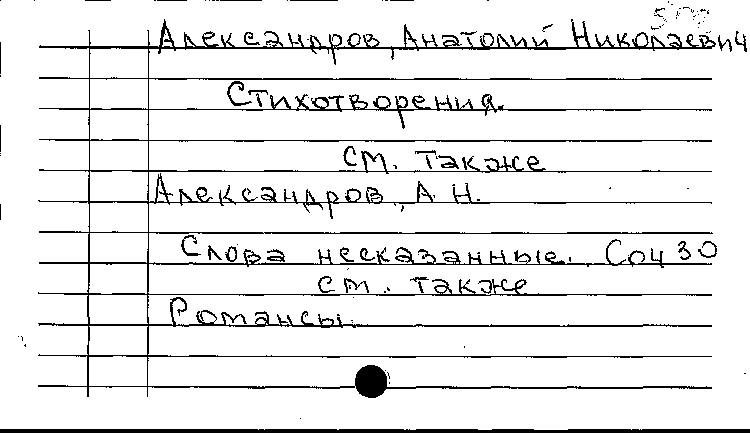 Александров, Анатолий Николаевич
Стихотворения.
см. также
Александров, А Н.
Слова несказанные. Соч 30
см. также
Романсы.